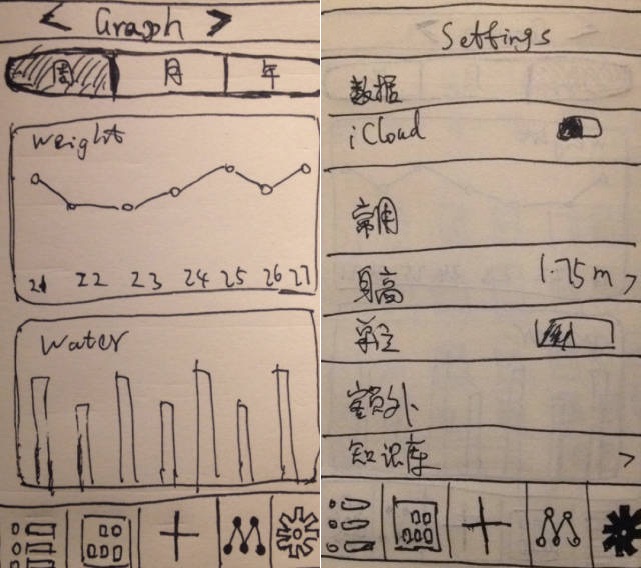 < Graph >
周 月 年
weight
21 22 23 24 25 26 27
Water
Settings
数据
iCloud
常用
身高 1.75m >
单位
额外
知识库 >